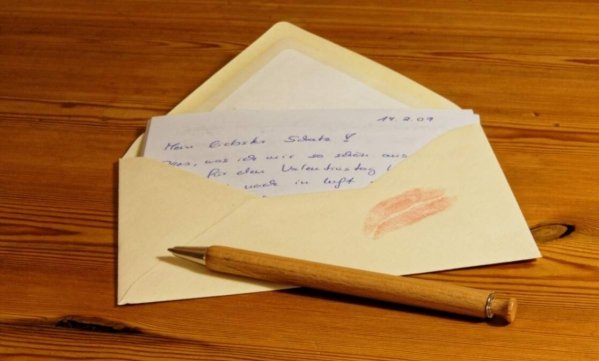 14.2.09
Mein liebster Schatz!
was ich mir so schön aus
für den Valentinstag
in Luft